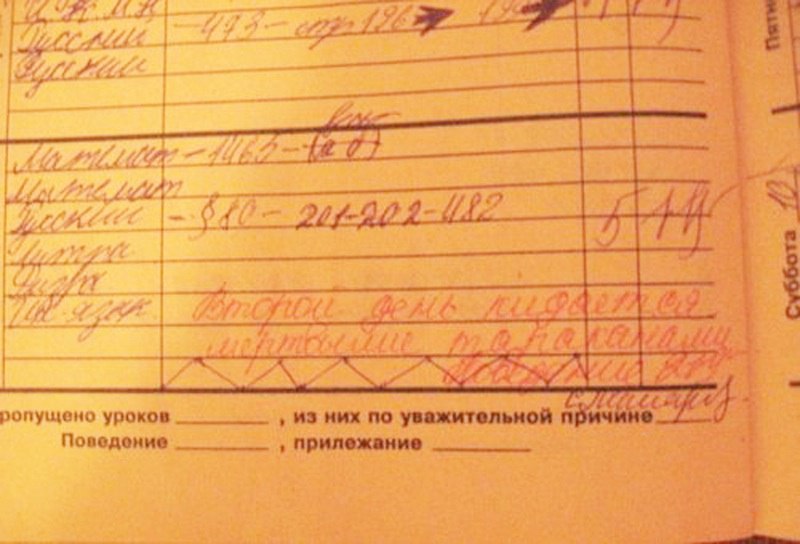 Русский - 493 - стр 196
Русский
Пятни
вся
Математ - 1465 - (а б)
Математ
Русский - §80 - 201-202-482 5
Литра
Физра
Суббота
Второй день кидается
мёртвыми тараканами
ропущено уроков , из них по уважительной причине
Поведение , прилежание